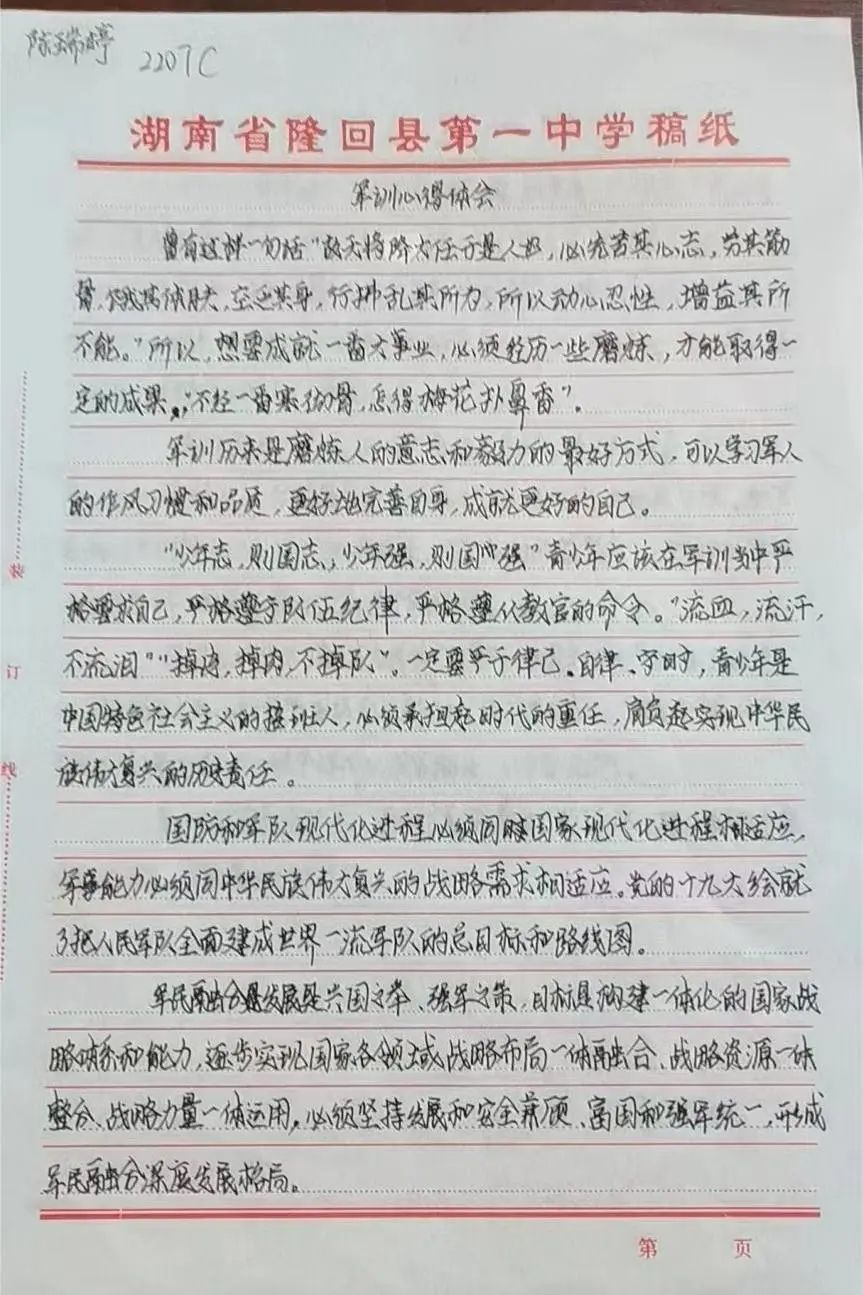 陈瑞婷 2207C
湖南省隆回县第一中学稿纸
军训心得体会
曾有这样一句话"故天将降大任于是人也，必先苦其心志，劳其筋
骨，饿其体肤，空乏其身，行拂乱其所为，所以动心忍性，增益其所
不能。"所以，想要成就一番大事业，必须经历一些磨炼，才能取得一
定的成果，"不经一番寒彻骨，怎得梅花扑鼻香"。
军训历来是磨炼人的意志和毅力的最好方式，可以学习军人
的作风习惯和品质，更好地完善自身，成就更好的自己。
"少年志，则国志，少年强，则国强"青少年应该在军训当中严
格要求自己，严格遵守队伍纪律，严格遵从教官的命令。"流血，流汗，
不流泪""掉肉，掉肉，不掉队"。一定要严于律己、自律、守时，青少年是
中国特色社会主义的接班人，必须承担起时代的重任，肩负起实现中华民
族伟大复兴的历史责任。
国防和军队现代化进程必须同国家现代化进程相适应，
军事能力必须同中华民族伟大复兴的战略需求相适应。党的十九大绘就
了把人民军队全面建成世界一流军队的总目标和路线图。
军民融合发展是兴国之举、强军之策，目标是构建一体化的国家战
略体系和能力，逐步实现国家各领域战略布局一体融合、战略资源一体
整合、战略力量一体运用，必须坚持发展和安全兼顾、富国和强军统一，形成
军民融合深度发展格局。
装
订
线
第 页